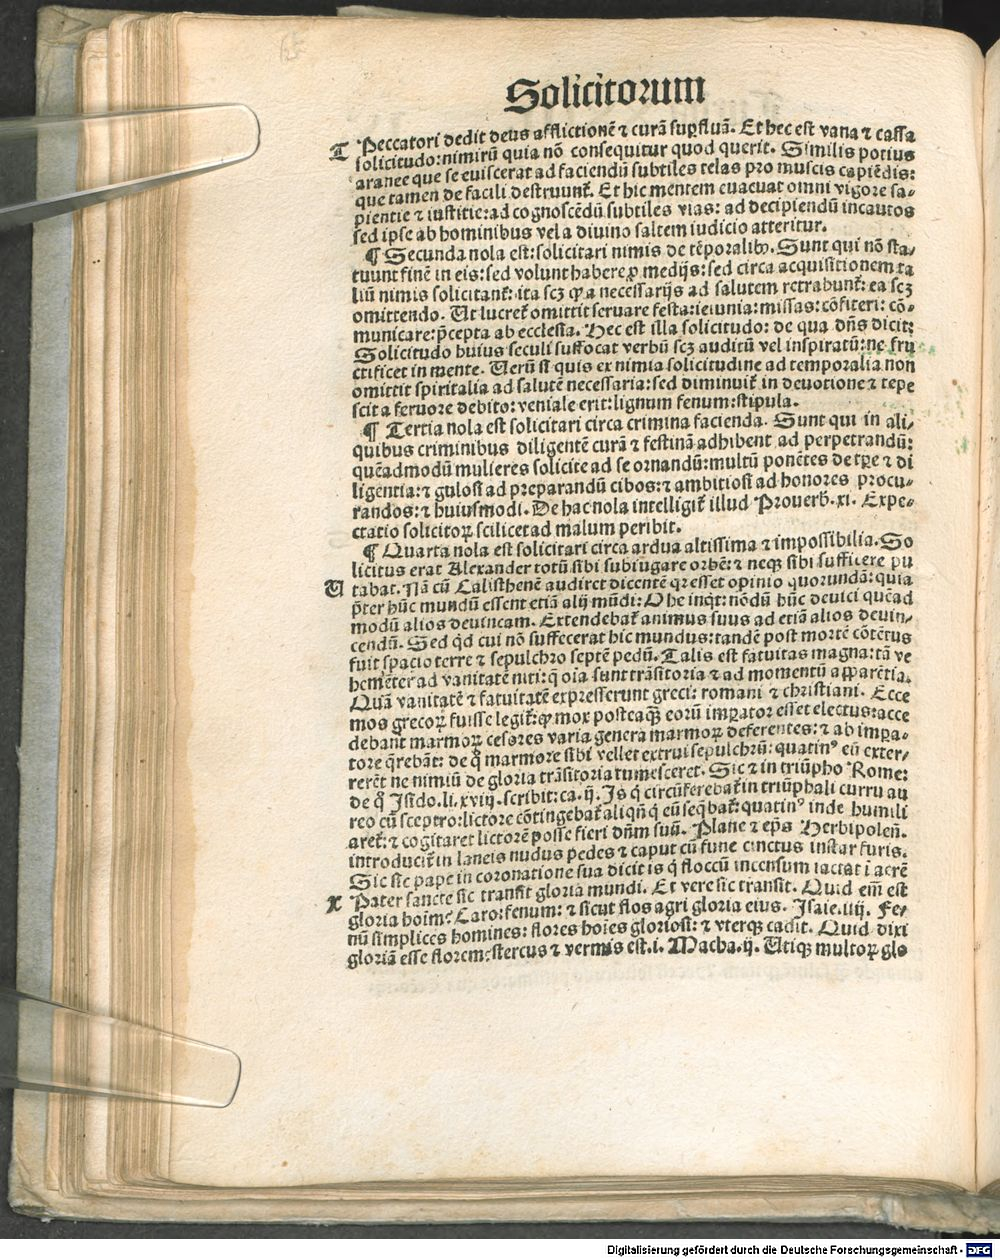 Solicitorum
T Peccatori dedit deus afflictionē ⁊ curā suꝑfluā. Et hec est vana ⁊ cassa
solicitudo: nimirū quia nō consequitur quod querit. Similis potius
aranee que se euiscerat ad faciendū subtiles telas pro muscis capiēdis:
que tamen de facili destruunt᷑. Et hic mentem euacuat omni vigore sa⸗
pientie ⁊ iustitie: ad cognoscēdū subtiles vias: ad decipiendū incautos
sed ipse ab hominibus vel a diuino saltem iudicio atteritur.
¶ Secunda nola est: solicitari nimis de tēporalibꝰ. Sunt qui nō sta⸗
tuunt finē in eis: sed volunt habere ꝓ medijs: sed circa acquisitionem ta
liū nimis solicitant᷑: ita scꝫ ꝙ a necessarijs ad salutem retrahunt᷑: ea scꝫ
omittendo. Ut lucret᷑ omittit seruare festa: ieiunia: missas: cōfiteri: cō⸗
municare: p̄cepta ab ecclesia. Hec est illa solicitudo: de qua dn̄s dicit:
Solicitudo huius seculi suffocat verbū scꝫ auditū vel inspiratū: ne fru
ctificet in mente. Uerū si quis ex nimia solicitudine ad temporalia non
omittit spiritalia ad salutē necessaria: sed diminuit᷑ in deuotione ⁊ tepe
scit a feruore debito: veniale erit: lignum fenum: stipula.
¶ Tertia nola est solicitari circa crimina facienda. Sunt qui in ali⸗
quibus criminibus diligentē curā ⁊ festinā adhibent ad perpetrandū:
quēadmodū mulieres solicite ad se ornandū: multū ponētes de tꝑe ⁊ di
ligentia: ⁊ gulosi ad preparandū cibos: ⁊ ambitiosi ad honores procu⸗
randos: ⁊ huiusmodi. De hac nola intelligit᷑ illud Prouerb. xi. Expe⸗
ctatio solicitoꝝ scilicet ad malum peribit.
¶ Quarta nola est solicitari circa ardua altissima ⁊ impossibilia. So
licitus erat Alexander totū sibi subiugare orbē: ⁊ neqꝫ sibi sufficere pu
U tabat. Nā cū Calisthenē audiret dicentē qr esset opinio quorundā: quia
p̄ter hūc mundū essent etiā alij mūdi: Ohe inqt: nōdū hūc deuici quēad
modū alios deuincam. Extendebat᷑ animus suus ad etiā alios deuin⸗
cendū. Sed qd cui nō suffecerat hic mundus: tandē post mortē cōtētus
fuit spacio terre ⁊ sepulchro septē pedū. Talis est fatuitas magna: tā ve
hemēter ad vanitatē niti: q̄ oīa sunt trāsitoria ⁊ ad momentū apparētia.
Quā vanitatē ⁊ fatuitatē expresserunt greci: romani ⁊ christiani. Ecce
mos grecoꝝ fuisse legit᷑: ꝙ mox postcaqꝫ eorū imꝑator esset electus: acce
debant marmoꝝ cesores varia genera marmoꝝ deferentes: ⁊ ab imꝑa⸗
tore q̄rebāt: de q̄ marmore sibi vellet extrui sepulchrū: quatinꝰ eū exter⸗
rerēt ne nimiū de gloria trāsitoria tumesceret. Sic ⁊ in triūpho Rome:
de q̄ Isido. li. xviij. scribit: ca. ij. Is q̄ circūferebat᷑ in triūphali curru au
reo cū sceptro: lictore cōtingebat᷑ aliqn̄ q̄ eū seq̄bat᷑: quatinꝰ inde humili
aret᷑: ⁊ cogitaret lictorē posse fieri dn̄m suū. Plane ⁊ ep̄s Herbipoleñ.
introducit᷑ in laneis nudus pedes ⁊ caput cū fune cinctus instar furis.
Sic sic pape in coronatione sua dicit is q̄ floccū incensum iactat ī aerē
X Pater sancte sic transit gloria mundi. Et vere sic transit. Quid em̄ est
gloria hoīmꝰ Caro: fenum: ⁊ sicut flos agri gloria eius. Isaie. iiij. Fe⸗
nū simplices homines: flores hoīes gloriosi: ⁊ vterqꝫ cadit. Quid dixi
gloriā esse florem: stercus ⁊ vermis est. i. Macha. ij. Utiqꝫ multoꝝ glo
Digitalisierung gefördert durch die Deutsche Forschungsgemeinschaft - DFG